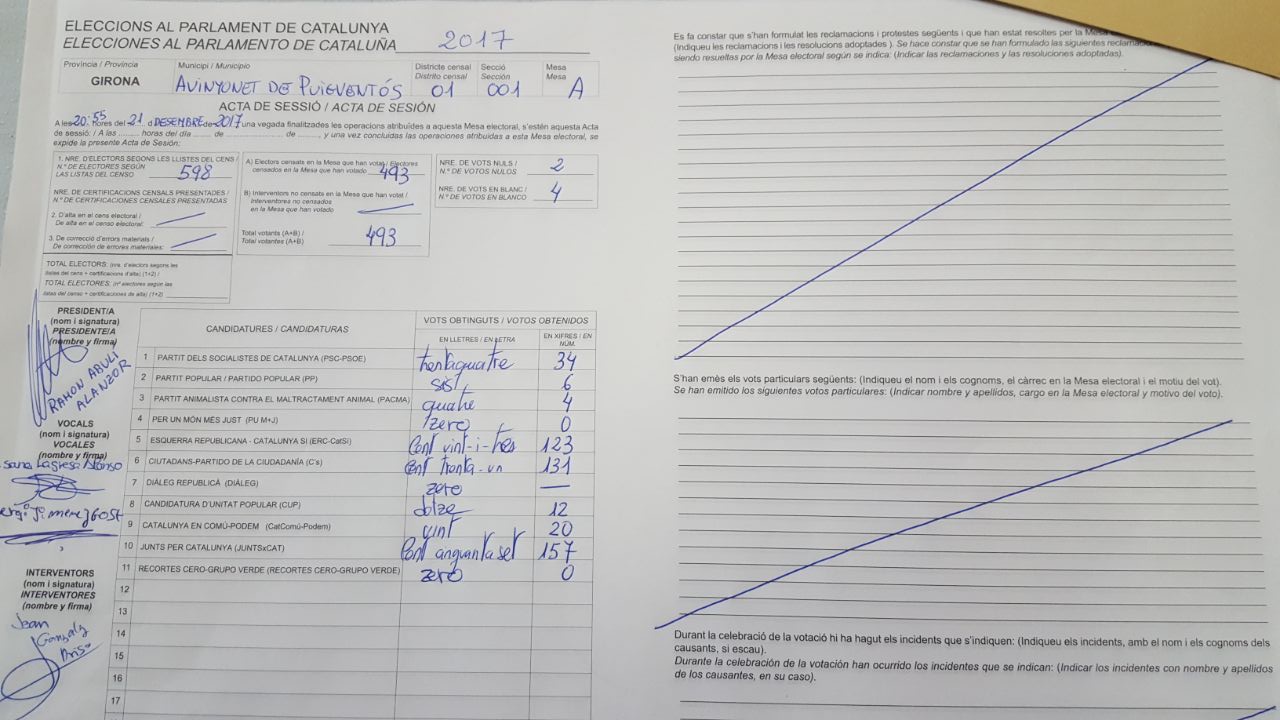 ELECCIONS AL PARLAMENT DE CATALUNYA
ELECCIONES AL PARLAMENTO DE CATALUÑA 2017
Província / Provincia Municipi / Municipio Districte censal Secció Mesa
Distrito censal Sección Mesa
GIRONA AVINYONET DE PUIGVENTÓS 01 001 A
ACTA DE SESSIÓ / ACTA DE SESIÓN
A les 20:55 hores del 21 d DESEMBRE de 2017 una vegada finalitzades les operacions atribuïdes a aquesta Mesa electoral, s'estén aquesta Acta
de sessió: / A las ......... horas del día ...... de .................. de ......, y una vez concluidas las operaciones atribuidas a esta Mesa electoral, se
expide la presente Acta de Sesión:
1. NRE. D'ELECTORS SEGONS LES LLISTES DEL CENS /
N.º DE ELECTORES SEGÚN
LAS LISTAS DEL CENSO 598
NRE. DE CERTIFICACIONS CENSALS PRESENTADES /
N.º DE CERTIFICACIONES CENSALES PRESENTADAS
2. D'alta en el cens electoral /
De alta en el censo electoral:
3. De correcció d'errors materials /
De corrección de errores materiales:
TOTAL ELECTORS: (nre. d'electors segons les
llistes del cens + certificacions d'alta) (1+2) /
TOTAL ELECTORES: (nº electores según las
listas del censo + certificaciones de alta) (1+2)
A) Electors censats en la Mesa que han votat / Electores
censados en la Mesa que han votado 493
B) Interventors no censats en la Mesa que han votat /
Interventores no censados
en la Mesa que han votado
Total votants (A+B) /
Total votantes (A+B) 493
NRE. DE VOTS NULS /
N.º DE VOTOS NULOS 2
NRE. DE VOTS EN BLANC /
N.º DE VOTOS EN BLANCO 4
PRESIDENT/A
(nom i signatura)
PRESIDENTE/A
(nombre y firma)
RAMON ABULI
ALANZOR
VOCALS
(nom i signatura)
VOCALES
(nombre y firma)
INTERVENTORS
(nom i signatura)
INTERVENTORES
(nombre y firma)
Jean
CANDIDATURES / CANDIDATURAS VOTS OBTINGUTS / VOTOS OBTENIDOS
EN LLETRES / EN LETRA EN XIFRES / EN NÚM.
1 PARTIT DELS SOCIALISTES DE CATALUNYA (PSC-PSOE) trentaquatre 34
2 PARTIT POPULAR / PARTIDO POPULAR (PP) sis 6
3 PARTIT ANIMALISTA CONTRA EL MALTRACTAMENT ANIMAL (PACMA) quatre 4
4 PER UN MÓN MÉS JUST (PU M+J) zero 0
5 ESQUERRA REPUBLICANA - CATALUNYA SI (ERC-CatSí) Cent vint-i-tres 123
6 CIUTADANS-PARTIDO DE LA CIUDADANÍA (C's) Cent trenta-un 131
7 DIÀLEG REPUBLICÀ (DIÀLEG) zero —
8 CANDIDATURA D'UNITAT POPULAR (CUP) dotze 12
9 CATALUNYA EN COMÚ-PODEM (CatComú-Podem) vint 20
10 JUNTS PER CATALUNYA (JUNTSxCAT) Cent cinquantaset 157
11 RECORTES CERO-GRUPO VERDE (RECORTES CERO-GRUPO VERDE) zero 0
12
13
14
15
16
17
Es fa constar que s'han formulat les reclamacions i protestes següents i que han estat resoltes per la Mesa
(Indiqueu les reclamacions i les resolucions adoptades ). Se hace constar que se han formulado las siguientes
siendo resueltas por la Mesa electoral según se indica: (Indicar las reclamaciones y las resoluciones adoptadas).
S'han emès els vots particulars següents: (Indiqueu el nom i els cognoms, el càrrec en la Mesa electoral i el motiu del vot).
Se han emitido los siguientes votos particulares: (Indicar nombre y apellidos, cargo en la Mesa electoral y motivo del voto).
Durant la celebració de la votació hi ha hagut els incidents que s'indiquen: (Indiqueu els incidents, amb el nom i els cognoms dels
causants, si escau).
Durante la celebración de la votación han ocurrido los incidentes que se indican: (Indicar los incidentes con nombre y apellidos
de los causantes, en su caso).